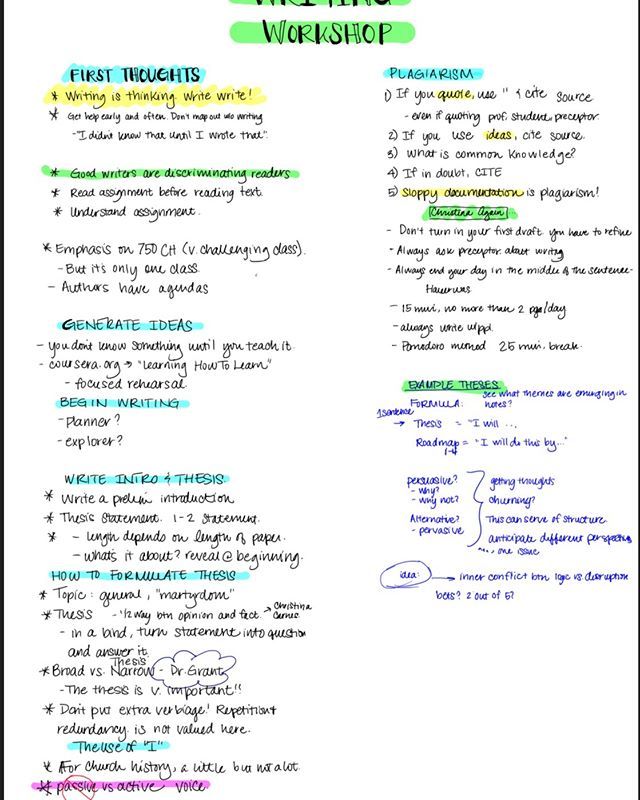 WRITING
WORKSHOP
FIRST THOUGHTS
* Writing is thinking. Write write!
* Get help early and often. Don't map out w/o writing
- "I didn't know that until I wrote that".
* Good writers are discriminating readers
* Read assignment before reading text.
* Understand assignment.
* Emphasis on 750 CH (v. challenging class).
- But it's only one class.
- Authors have agendas
GENERATE IDEAS
- you don't know something until you teach it.
- coursera.org → "Learning How To Learn"
- focused rehearsal.
BEGIN WRITING
- planner?
- explorer?
WRITE INTRO & THESIS
* Write a prelim introduction
* Thesis Statement. 1-2 statement.
* - length depends on length of paper.
- what's it about? reveal @ beginning.
HOW TO FORMULATE THESIS
* Topic: general, "martyrdom"
* Thesis - 1/2 way btn opinion and fact. → Christina
- in a bind, turn statement into question
and answer it.
* Broad vs. Narrow Thesis - Dr. Grant
- The thesis is v. important!!
* Don't put extra verbiage! Repetition
redundancy. is not valued here.
The use of "I"
* For church history, a little but not a lot.
* passive vs active voice.
PLAGIARISM
1) If you quote, use " & cite source
- even if quoting prof, student, preceptor.
2) If you use ideas, cite source.
3) What is common knowledge?
4) If in doubt, CITE
5) Sloppy documentation is plagiarism!
Christina Again
- Don't turn in your first draft. you have to refine
- Always ask preceptor about writing
- Always end your day in the middle of the sentence-
- 15 min, no more than 2 pgs/day
- always write
- Pomodoro method 25 min, break.
EXAMPLE THESES
FORMULA: see what themes are emerging in
notes?
1 sentence
→ Thesis = "I will ...
Roadmap = "I will do this by..."
1-4
persuasive?
- why?
- why not?
Alternative?
- pervasive
getting thoughts
churning?
This can serve of structure.
anticipate different perspectives
one issue
idea: → inner conflict btn logic vs disruption
bets? 2 out of 5?